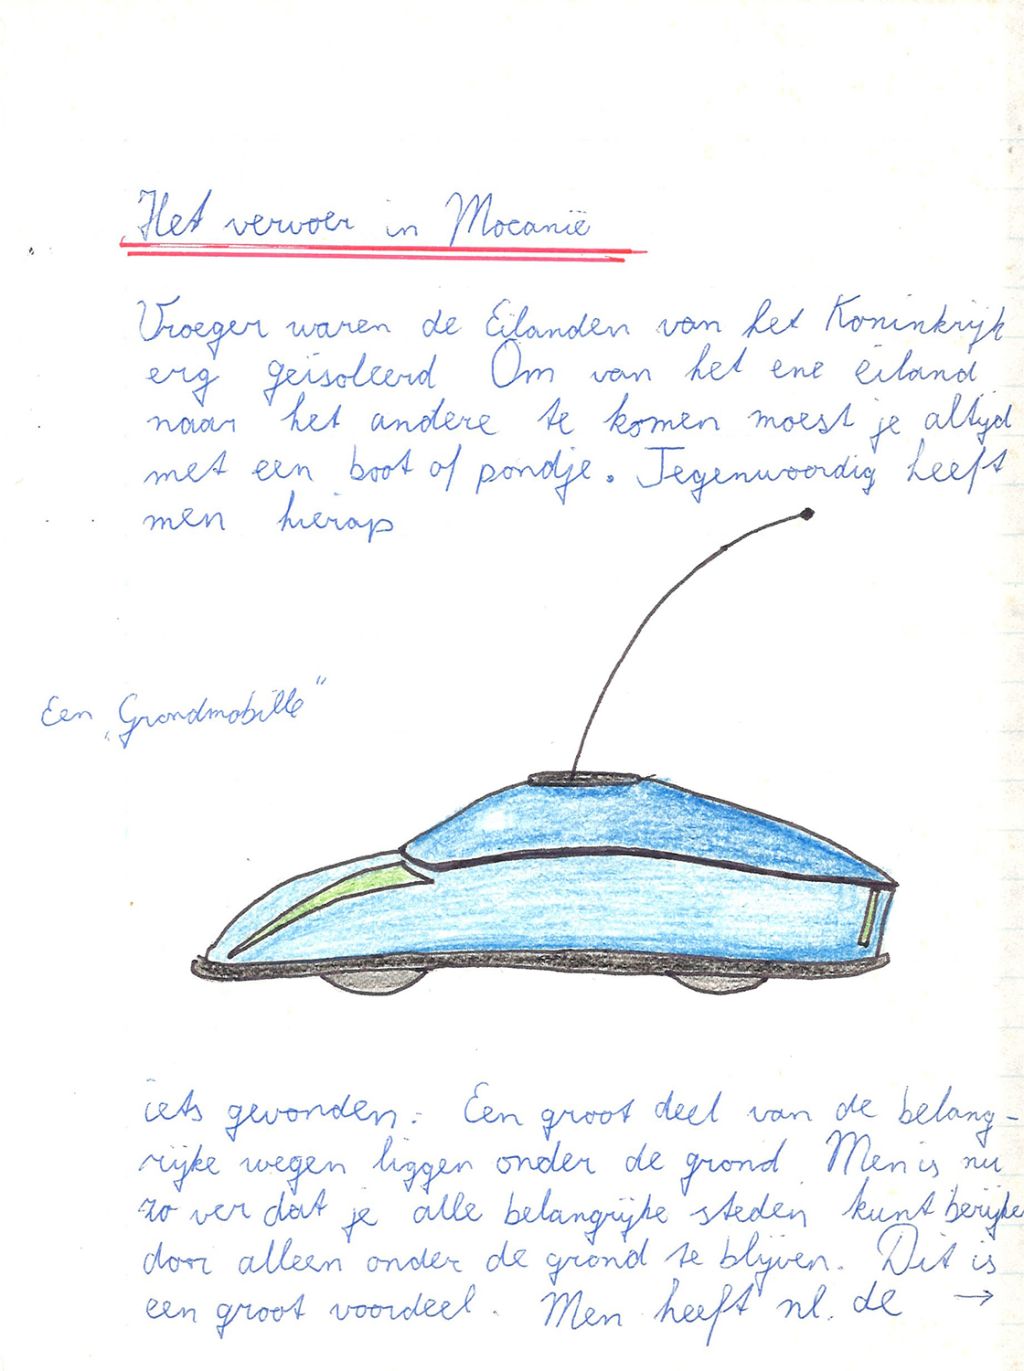 Het vervoer in Mocanië
Vroeger waren de Eilanden van het Koninkrijk
erg geïsoleerd Om van het ene eiland
naar het andere te komen moest je altijd
met een boot of pondje. Tegenwoordig heeft
men hierop
Een „Grondmobille”
iets gevonden. Een groot deel van de belang-
rijke wegen liggen onder de grond Men is nu
zo ver dat je alle belangrijke steden kunt berijke
door alleen onder de grond te blijven. Dit is
een groot voordeel. Men heeft nl. de →